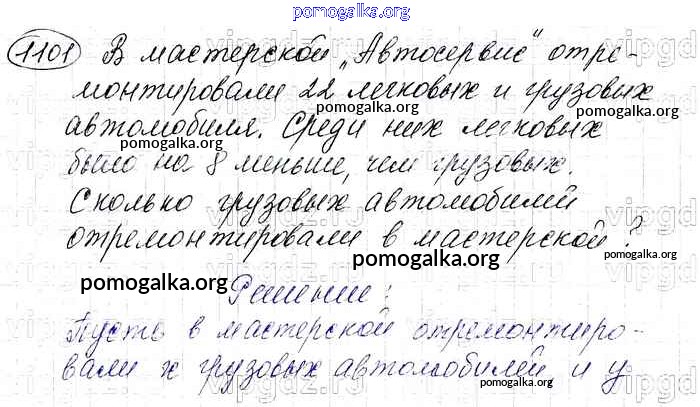 pomogalka.org
1101 В мастерской „Автосервис" отре-
монтировали 22 легковых и грузовых
pomogalka.org
автомобиля. Среди них легковых
pomogalka.org pomogalka.org
было на 8 меньше, чем грузовых.
Сколько грузовых автомобилей
отремонтировали в мастерской?
pomogalka.org pomogalka.org
Решение:
Пусть в мастерской отремонтиро-
pomogalka.org
вали x грузовых автомобилей и у
pomogalka.org